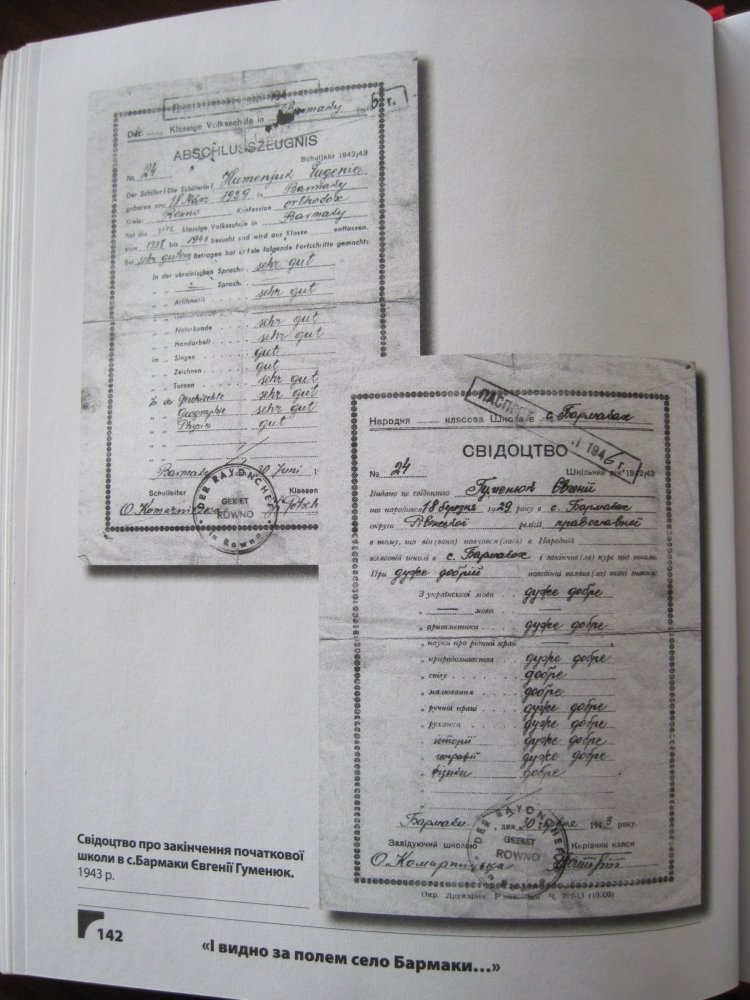 Die Klassige Volksschule in Barmaky
ABSCHLUSSZEUGNIS
№ 24 Schuljahr 1942/43
Der Schüler (Die Schülerin) Humenjuk Eugenie
geboren am: 18 März 1929 in Barmaky
Kreis: Rowno Konfession orthodox
hat die klassige Volksschule in Barmaky
vom 1938 bis 1941 besucht und wird aus Klasse entlassen.
Bei sehr gutem Betragen hat er/sie folgende Fortschritte gemacht:
In der ukrainischen Sprache sehr gut
" " — Sprach.
" " Arithmetik sehr gut
" "
" " Naturkunde sehr gut
" " Handarbeit sehr gut
im Singen gut
" " Zeichnen gut
" " Turnen sehr gut
In der Geschichte sehr gut
" " Geographie sehr gut
" " Physik gut
Barmaky 30 Juni
Schulleiter Klassen
DER RAYONCHEF
GEBIET
ROWNO
in Rowno
ПАСПОРТ 1946 г.
Народня клясова Школа в с. Бармаках
СВІДОЦТВО
№ 24 Шкільний рік 1942/43
Видано це свідоцтво Гуменюк Євгенії
що народився 18 березня 1929 року в с. Бармаках
округи Рівенської релігії православної
в тому, що він(вона) навчався(лась) в Народній
клясовій школі в с. Бармаках і закінчив(ла) курс цієї школи.
При дуже добрій поведінці виявив(ла) такі знання:
З української мови дуже добре
" — мови —
" аритметики дуже добре
" науки про рідний край —
" природознавства дуже добре
" співу добре
" малювання добре
" ручної праці дуже добре
" руханки дуже добре
" історії дуже добре
" географії дуже добре
" фізики добре
Бармаки, дня 30 червня 1943 року.
Завідуючий школою Керівник кляси
О. Комарницька
DER RAYONCHEF
GEBIET
ROWNO
Свідоцтво про закінчення початкової
школи в с.Бармаки Євгенії Гуменюк.
1943 р.
142
«І видно за полем село Бармаки…»